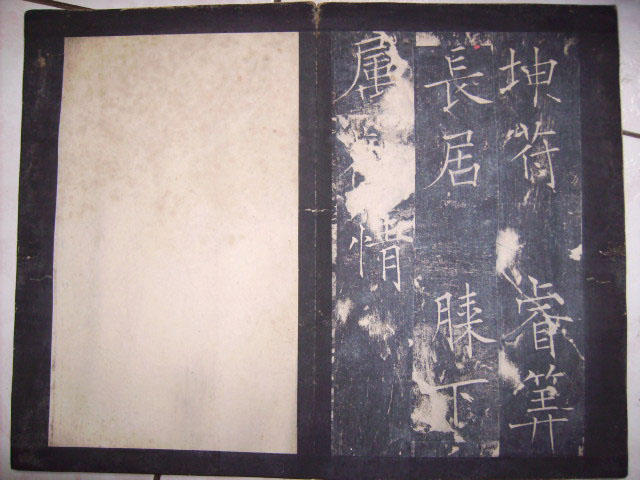 坤符睿筭
長居膝下
属情